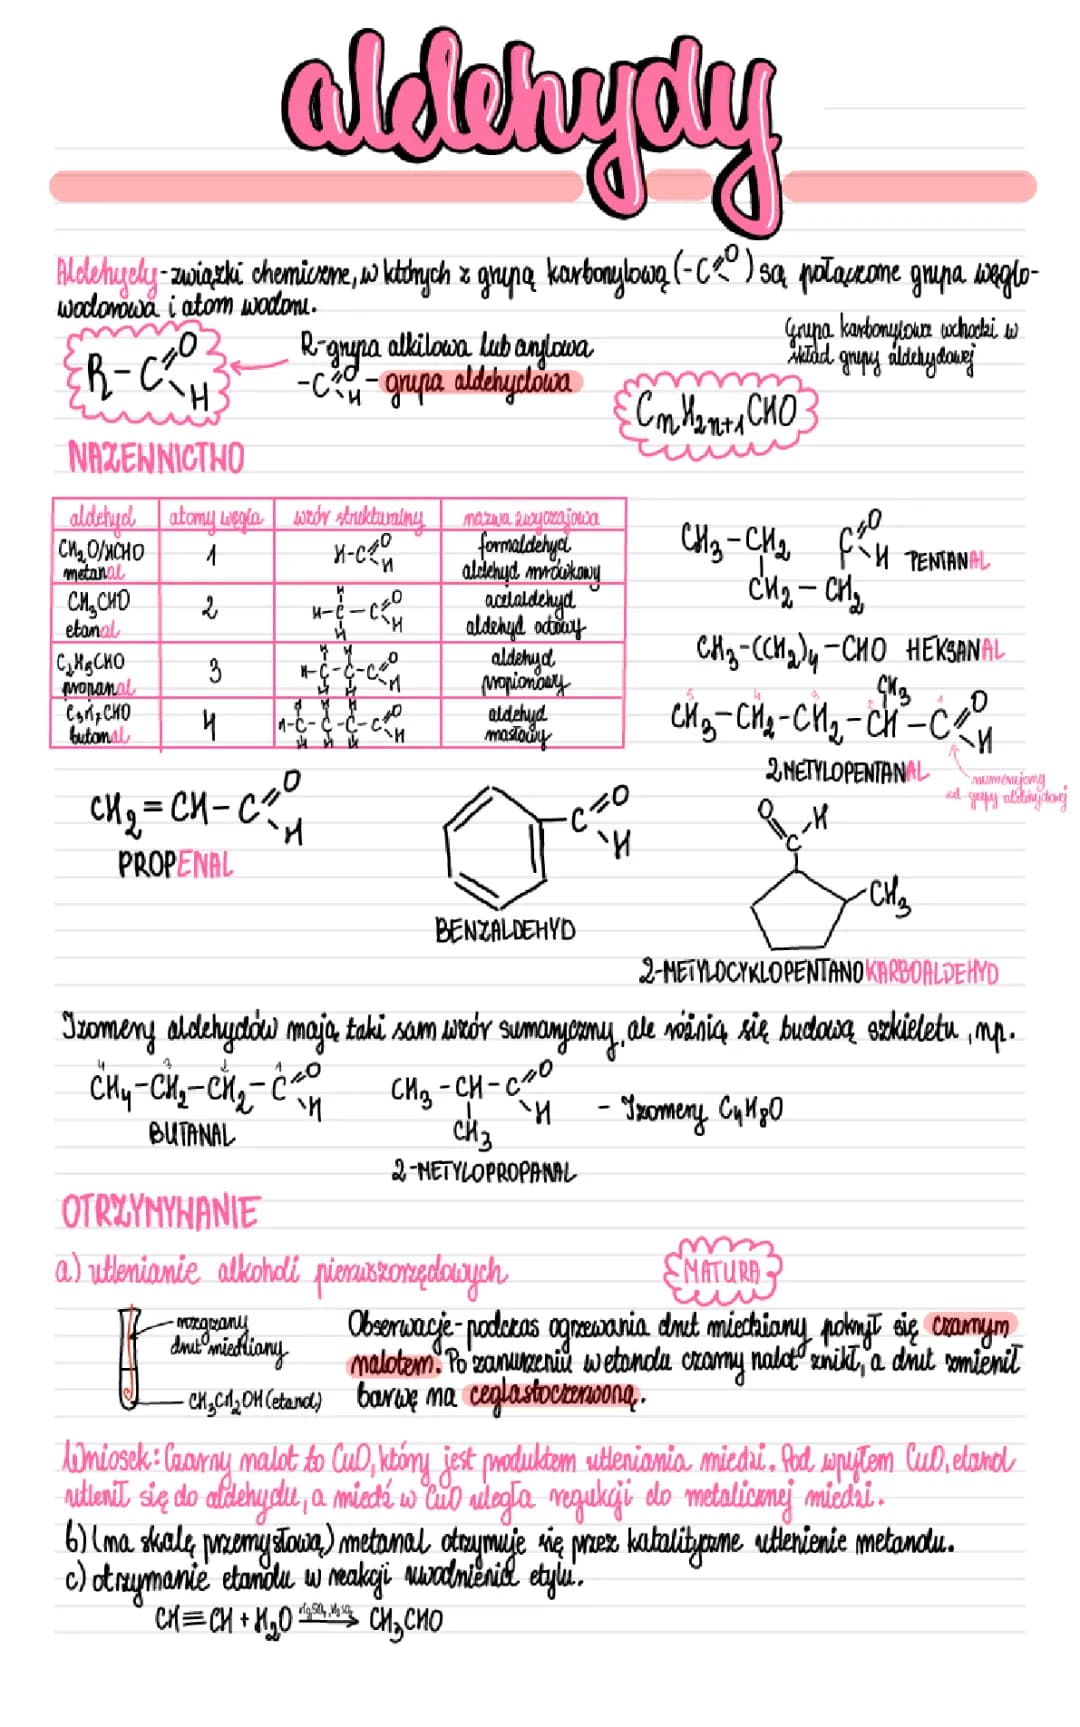 aldehydy
Aldehydy - związki chemiczne, w których z grupą karbonylową (-C=O) są połączone grupa węglo-
wodorowa i atom wodoru.
R-C=O
H
R-grupa alkilowa lub arylowa
-C=O
H - grupa aldehydowa
Grupa karbonylowa wchodzi w
skład grupy aldehydowej
CnH2n+1CHO
NAZEWNICTWO
aldehyd atomy węgla wzór strukturalny nazwa zwyczajowa
CH₂O/HCHO
metanal
1
H-C=O
H
formaldehyd
aldehyd mrówkowy
CH₃CHO
etanal
2
H
H-C-C=O
H H
acetaldehyd
aldehyd octowy
C₂H₅CHO
propanal
3
H H
H-C-C-C=O
H H H
aldehyd
propionowy
C₃H₇CHO
butanal
4
H H H
H-C-C-C-C=O
H H H H
aldehyd
masłowy
CH₃-CH₂ C=O
H PENTANAL
CH₂-CH₂
CH₃-(CH₂)₄-CHO HEKSANAL
CH₃
5 4 3 2 1
CH₃-CH₂-CH₂-CH-C=O
H
2METYLOPENTANAL
numerujemy
od grupy aldehydowej
CH₂=CH-C=O
H
PROPENAL
C=O
H
BENZALDEHYD
O H
C
CH₃
2-METYLOCYKLOPENTANOKARBOALDEHYD
Izomery aldehydów mają taki sam wzór sumaryczny, ale różnią się budową szkieletu, np.
4 3 2 1
CH₄-CH₂-CH₂-C=O
H
BUTANAL
CH₃-CH-C=O
H
CH₃
2-METYLOPROPANAL
- Izomery C₄H₈O
OTRZYMYWANIE
a) utlenianie alkoholi pierwszorzędowych
MATURA
rozgrzany
drut miedziany
CH₃CH₂OH (etanol)
Obserwacje - podczas ogrzewania drut miedziany pokrył się czarnym
nalotem. Po zanurzeniu w etanolu czarny nalot znikł, a drut zmienił
barwę na ceglastoczerwoną.
Wniosek: Czarny nalot to CuO, który jest produktem utleniania miedzi. Pod wpływem CuO, etanol
utlenił się do aldehydu, a miedź w CuO uległa redukcji do metalicznej miedzi.
b) (na skalę przemysłową) metanal otrzymuje się przez katalityczne utlenienie metanolu.
c) otrzymanie etanolu w reakcji uwodnienia etylu.
CH≡CH + H₂O HgSO₄, H₂SO₄ → CH₃CHO